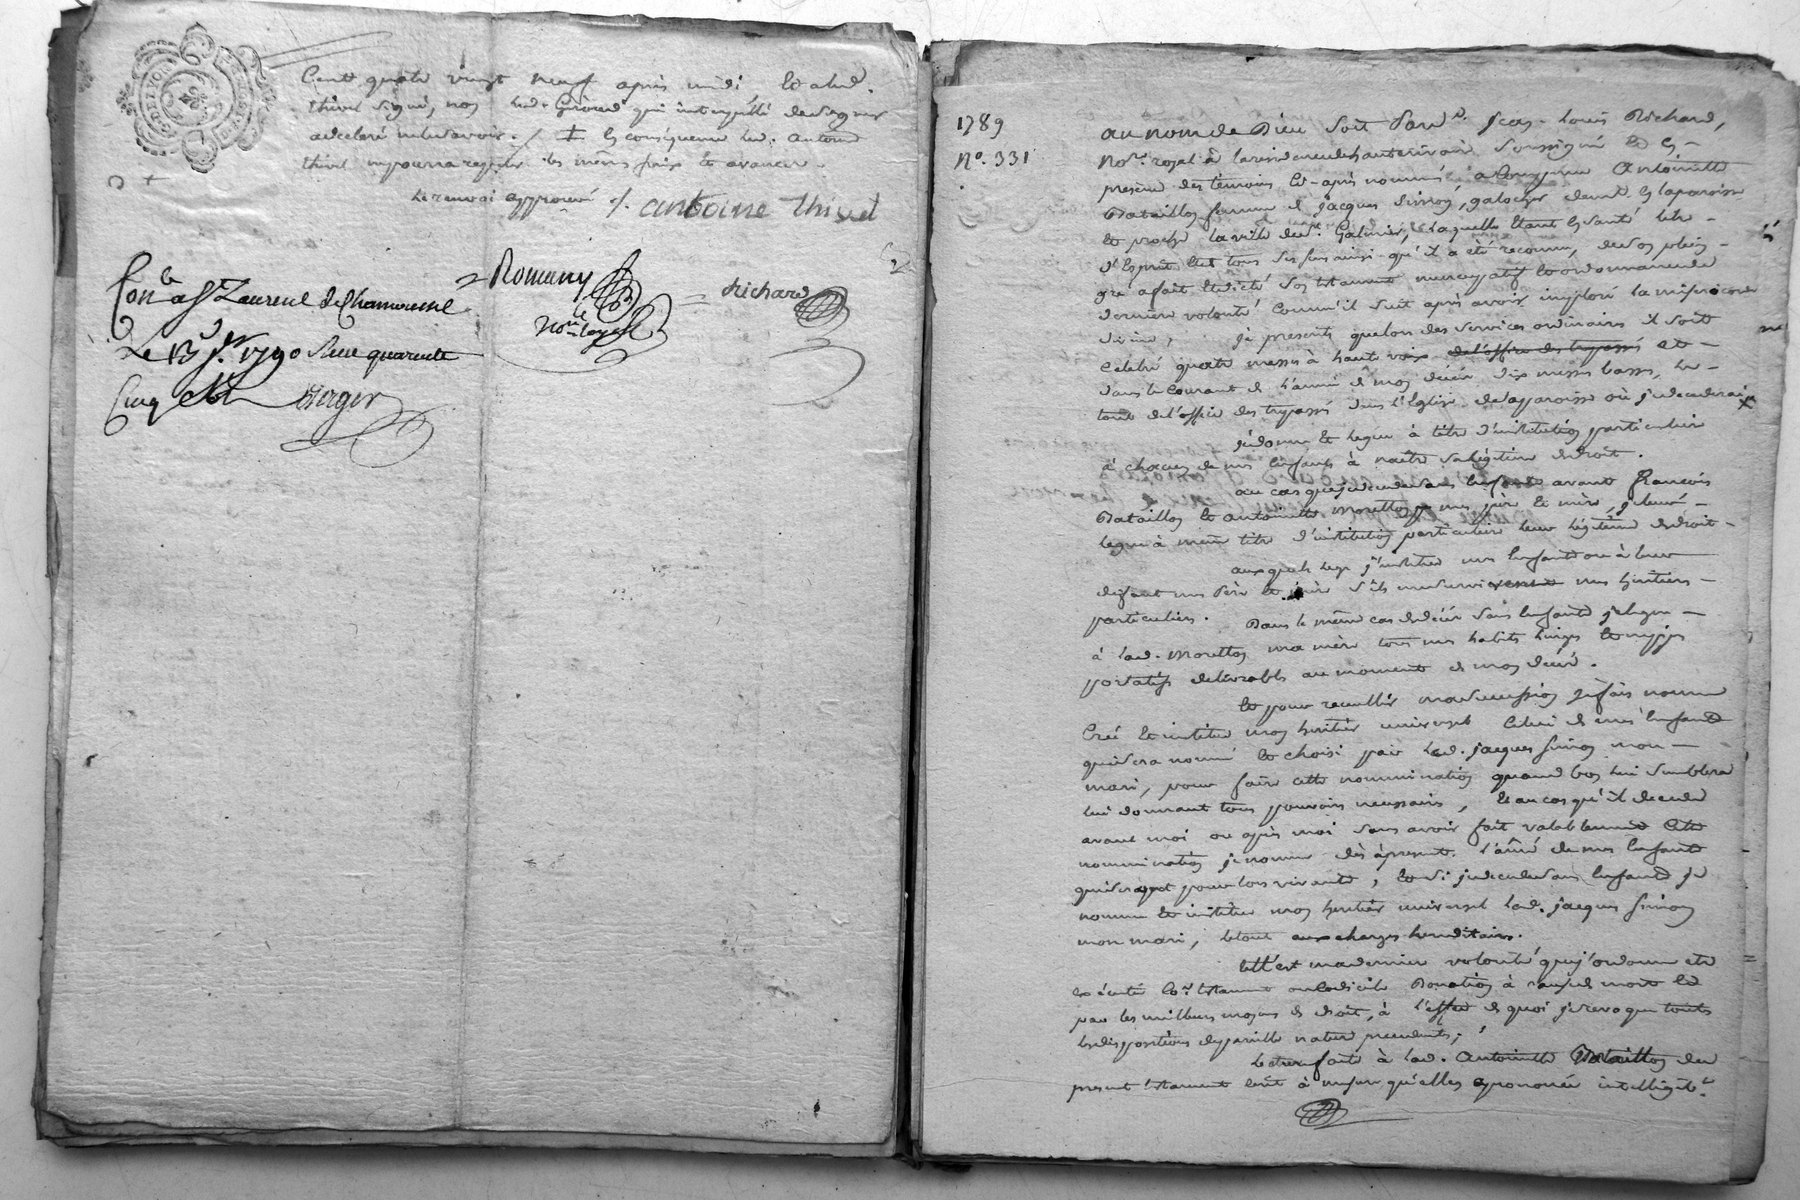 Cent quatre vingt neuf après midi, led. ant.
thivel signé, non lad. qui interpellé de signer
a declaré ne le savoir ./. + En consequence led. antoine
thivel ne pourra repeter les mêmes frais et avances.
Le renvoi approuvé ./. antoine thivel
Romany
Richard
Con.le a St Laurent de Chamousset
Le 13 j.er 1790 Reçu quarante
Cinq Berger
1789
N°. 331
au nom de Dieu soit Pard.t Jean-Louis Richard,
No.re royal à la residence de soussigné et en
presence des temoins ci-après nommés, a comparu Antoinette
Bataillon femme de jacques Simon, galocher dem.t en la paroisse
et proche la ville de St. Galmier, laquelle étant en santé libre
d'Esprit et de tous ses sens ainsi qu'il a été reconnu, de son plein
gré a fait et dicté son testament nuncupatif et ordonnance de
derniere volonté comme il suit après avoir imploré la misericorde
divine, je presents qu'outre des services ordinaires il soit
celebré quatre messes à haute voix de l'office des trepassés et
dans le courant de l'année de mon décès dix messes basses, le
tout de l'office des trepassés dans l'Eglise de la parroisse où je decederai
je donne et legue à titre d'institution particuliere
à chacun de mes enfants à naître sa légitime de droit.
au cas que je decede sans enfants avant François
Bataillon et antoinette Moretton mes père et mère, je leur
legue à même titre d'institution particuliere leur légitime de droit
auxquels legs j'institue mes enfants ou à leur
defaut mes père et mère s'ils me survivent mes heritiers
particuliers. Dans le même cas de décès sans enfants je legue
à lad. Moretton ma mère tous mes habits linges et nippes
portatifs delivrables au moment de mon décès.
Et pour recueillir ma succession je fais nomme
Créé et institue mon heritier universel celui de mes enfants
qui sera nommé et choisi par led. jacques Simon mon
mari, pour faire cette nomination quand bon lui semblera
lui donnant tous pouvoirs necessaires, et au cas qu'il decede
avant moi ou après moi sans avoir fait valablement cette
nomination je nomme dès à present l'ainé de mes enfants
qui seront pour lors vivants, et si je decede sans enfants je
nomme et institue mon heritier universel led. jacques Simon
mon mari, le tout aux charges hereditaires.
telle est ma derniere volonté que j'ordonne etre
executée par testament ou codicile Donation à cause de mort et
par les meilleurs moyens de droit, à l'effet de quoi je revoque toutes
les dispositions de pareille nature precedentes;
Lecture faite à lad. Antoinette Bataillon du
present testament écrit à mesure qu'elle a prononcé intelligibl.t